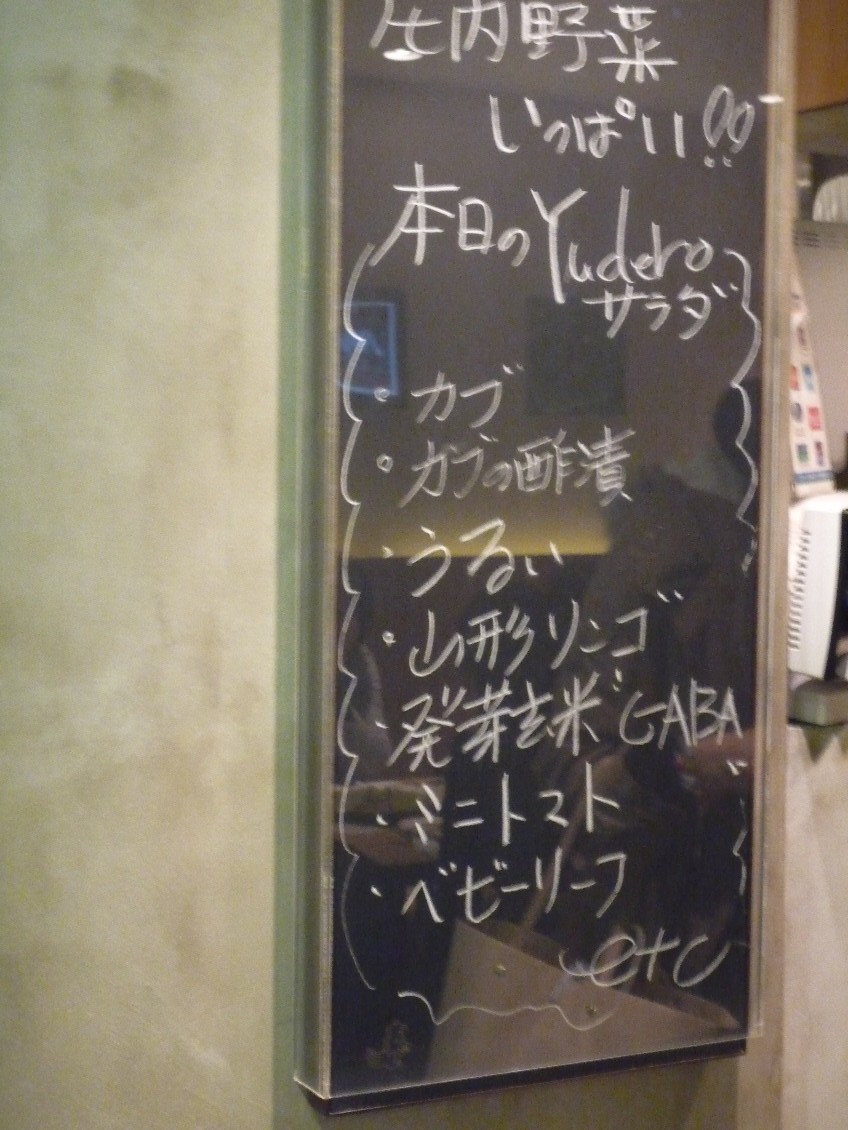 庄内野菜
いっぱい!!
本日のYudero
サラダ
・カブ
・カブの酢漬
・うるい
・山形リンゴ
・発芽玄米GABA
・ミニトマト
・ベビーリーフ
etc